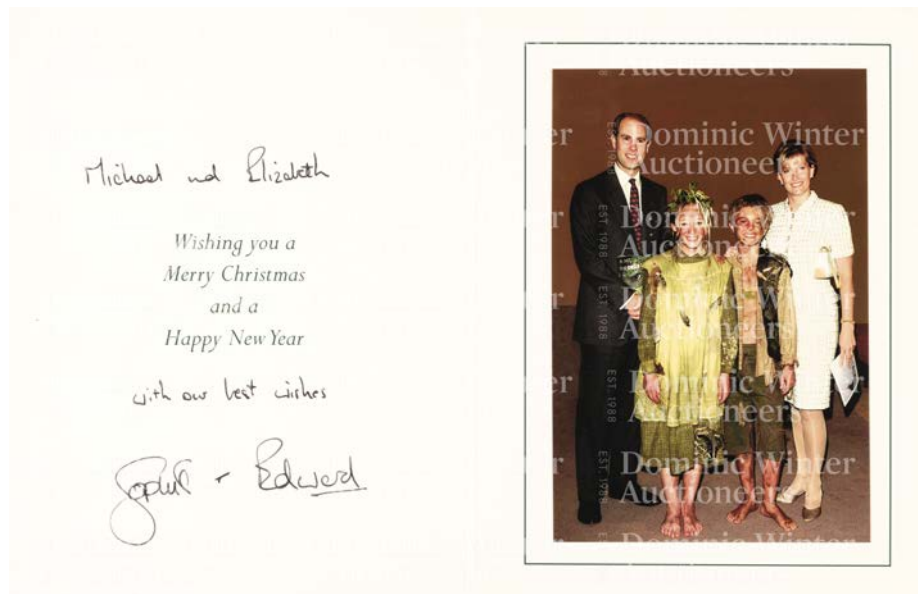 Michael and Elizabeth
Wishing you a
Merry Christmas
and a
Happy New Year
with our best wishes
Sophie + Edward
Dominic Winter
Auctioneers
EST. 1988